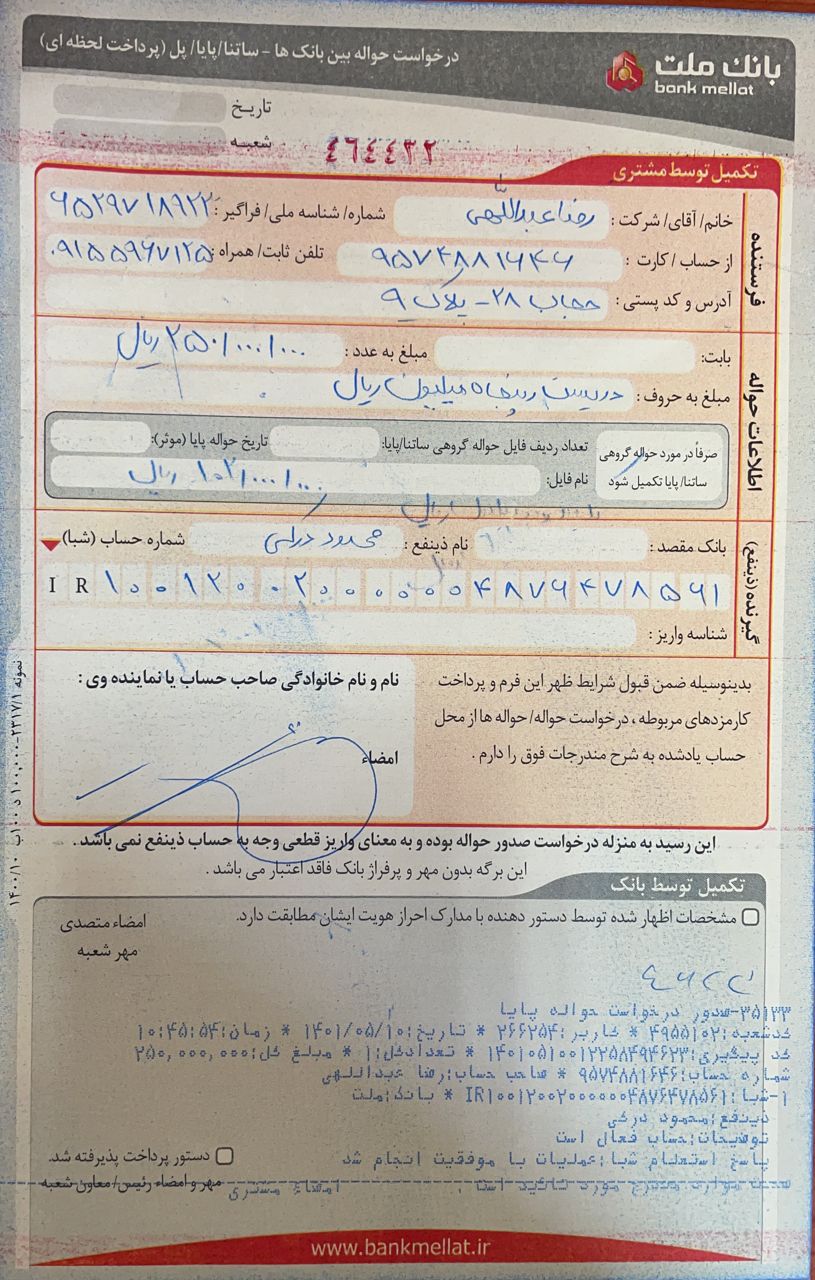 درخواست حواله بین بانک ها - ساتنا/پایا/پل (پرداخت لحظه ای)
بانک ملت
bank mellat
تاریخ
شعبه
۴۶۴۴۳۲
تکمیل توسط مشتری
فرستنده
خانم/ آقای/ شرکت : رضا عبداللهی شماره/ شناسه ملی/ فراگیر : ۶۵۲۹۷۱۸۹۲۲
از حساب / کارت : ۹۵۷۴۸۸۱۶۴۶ تلفن ثابت/ همراه : ۰۹۱۵۵۹۶۷۱۲۵
آدرس و کد پستی : حجاب ۲۸ - پلاک ۹
اطلاعات حواله
بابت: مبلغ به عدد : ۲۵۰/۰۰۰/۰۰۰ ریال
مبلغ به حروف : دویست و پنجاه میلیون ریال
صرفاً در مورد حواله گروهی ساتنا/ پایا تکمیل شود
تعداد ردیف فایل حواله گروهی ساتنا/پایا: تاریخ حواله پایا (موثر):
نام فایل: ۱۰۲/۰۰۰/۰۰۰ ریال
گیرنده (ذینفع)
بانک مقصد : نام ذینفع : محمود درکی شماره حساب (شبا)
IR ۱۰۰۱۲۰۰۲۰۰۰۰۰۰۴۸۷۶۴۷۸۵۶۱
شناسه واریز :
بدینوسیله ضمن قبول شرایط ظهر این فرم و پرداخت
کارمزدهای مربوطه ، درخواست حواله/ حواله ها از محل
حساب یادشده به شرح مندرجات فوق را دارم .
نام و نام خانوادگی صاحب حساب یا نماینده وی :
امضاء
این رسید به منزله درخواست صدور حواله بوده و به معنای واریز قطعی وجه به حساب ذینفع نمی باشد .
این برگه بدون مهر و پرفراژ بانک فاقد اعتبار می باشد .
تکمیل توسط بانک
مشخصات اظهار شده توسط دستور دهنده با مدارک احراز هویت ایشان مطابقت دارد.
امضاء متصدی
مهر شعبه
۳۵۱۳۳-صدور درخواست حواله پایا
کدشعبه:۴۹۵۵۱۰۲ * کاربر:۲۶۶۲۵۴ * تاریخ:۱۴۰۱/۰۵/۱۰ * زمان:۱۰:۴۵:۵۴
کد پیگیری:۱۴۰۱۰۵۱۰۰۱۲۲۵۸۴۹۴۶۲۳ * تعدادکل:۱ * مبلغ کل:۲۵۰,۰۰۰,۰۰۰
شماره حساب:۹۵۷۴۸۸۱۶۴۶ * صاحب حساب:رضا عبداللهی
۱-شبا:IR۱۰۰۱۲۰۰۲۰۰۰۰۰۰۴۸۷۶۴۷۸۵۶۱ * بانک:ملت
ذینفع:محمود درکی
توضیحات:حساب فعال است
پاسخ استعلام شبا:عملیات با موفقیت انجام شد
صحت موارد مندرج مورد تائید است . امضاء مشتری
دستور پرداخت پذیرفته شد.
مهر و امضاء رئیس/ معاون شعبه
www.bankmellat.ir